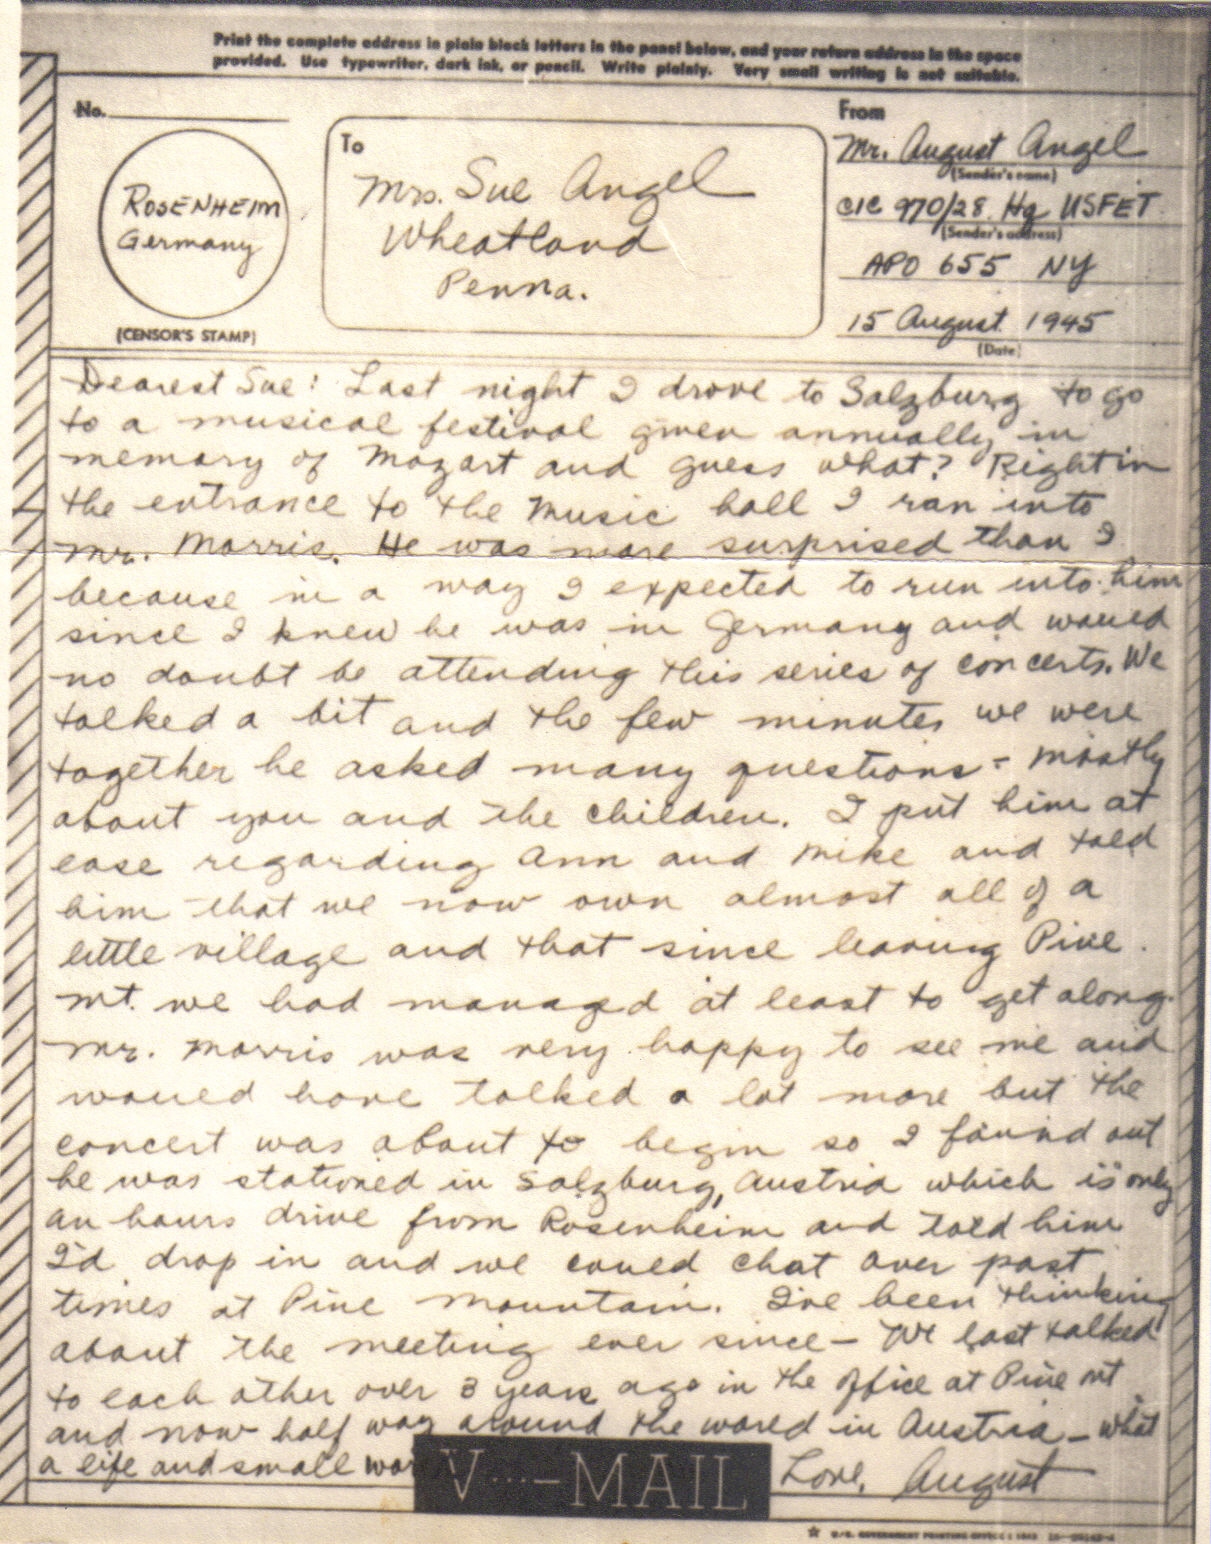 Print the complete address in plain block letters in the panel below, and your return address in the space
provided. Use typewriter, dark ink, or pencil. Write plainly. Very small writing is not suitable.
No.
ROSENHEIM
Germany
(CENSOR'S STAMP)
To
Mrs. Sue Angel
Wheatland
Penna.
From
Mr. August Angel
(Sender's name)
CIC 970/28 Hq USFET
(Sender's address)
APO 655 NY
15 August 1945
(Date)
Dearest Sue: Last night I drove to Salzburg to go
to a musical festival given annually in
memory of Mozart and guess what? Right in
the entrance to the music hall I ran into
Mr. Morris. He was more surprised than I
because in a way I expected to run into him
since I knew he was in Germany and would
no doubt be attending this series of concerts. We
talked a bit and the few minutes we were
together he asked many questions - mostly
about you and the children. I put him at
ease regarding Ann and Mike and told
him that we now own almost all of a
little village and that since leaving Pine
Mt. we had managed at least to get along.
Mr. Morris was very happy to see me and
would have talked a lot more but the
concert was about to begin so I found out
he was stationed in Salzburg, Austria which is only
an hours drive from Rosenheim and told him
I'd drop in and we could chat over past
times at Pine Mountain. I've been thinking
about the meeting ever since - We last talked
to each other over 3 years ago in the office at Pine Mt
and now half way around the world in Austria - what
a life and small
V···-MAIL
Love, August
U.S. GOVERNMENT PRINTING OFFICE